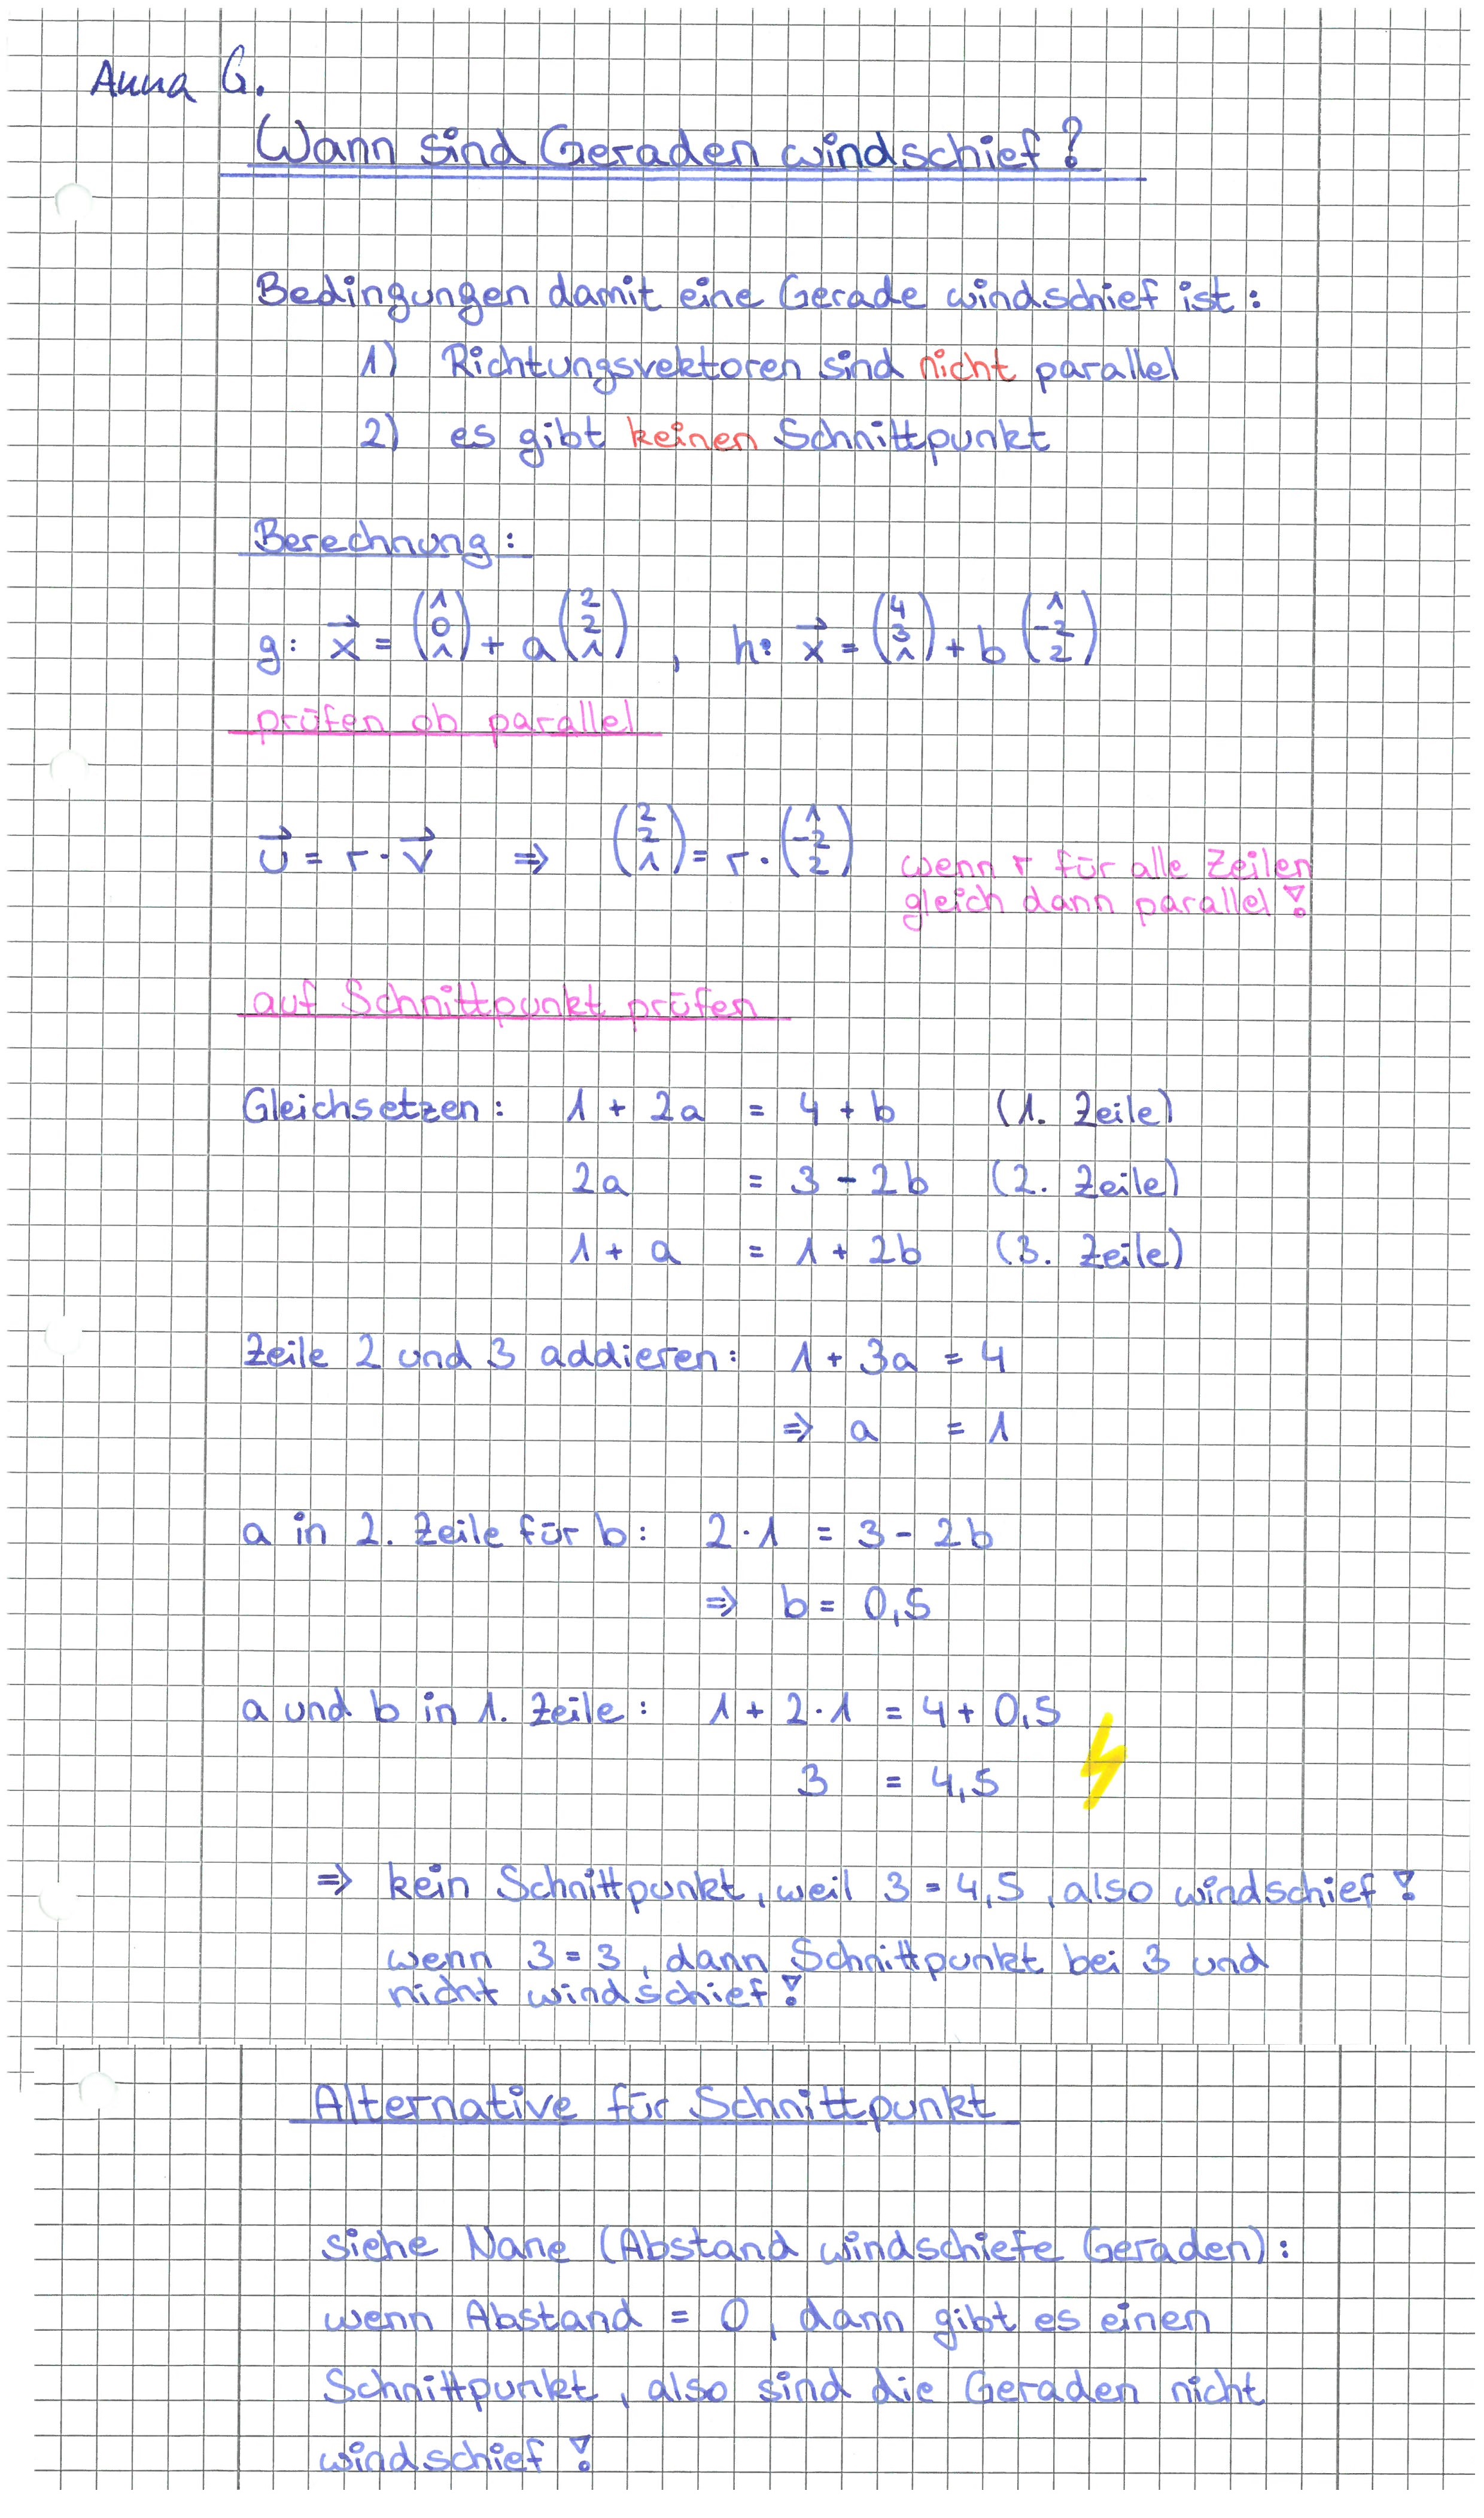 Anna G.
Wann sind Geraden windschief?
Bedingungen damit eine Gerade windschief ist:
1) Richtungsvektoren sind nicht parallel
2) es gibt keinen Schnittpunkt
Berechnung:
g: x⃗ = (1 0 1) + a (2 2 1) , h: x⃗ = (4 3 1) + b (1 -2 2)
prüfen ob parallel
u⃗ = r · v⃗ ⇒ (2 2 1) = r · (1 -2 2) wenn r für alle Zeilen
gleich dann parallel!
auf Schnittpunkt prüfen
Gleichsetzen: 1 + 2a = 4 + b (1. Zeile)
2a = 3 - 2b (2. Zeile)
1 + a = 1 + 2b (3. Zeile)
Zeile 2 und 3 addieren: 1 + 3a = 4
⇒ a = 1
a in 2. Zeile für b: 2 · 1 = 3 - 2b
⇒ b = 0,5
a und b in 1. Zeile: 1 + 2 · 1 = 4 + 0,5
3 = 4,5
⇒ kein Schnittpunkt, weil 3 = 4,5, also windschief!
wenn 3 = 3, dann Schnittpunkt bei 3 und
nicht windschief!
Alternative für Schnittpunkt
siehe Nane (Abstand windschiefe Geraden):
wenn Abstand = 0, dann gibt es einen
Schnittpunkt, also sind die Geraden nicht
windschief!